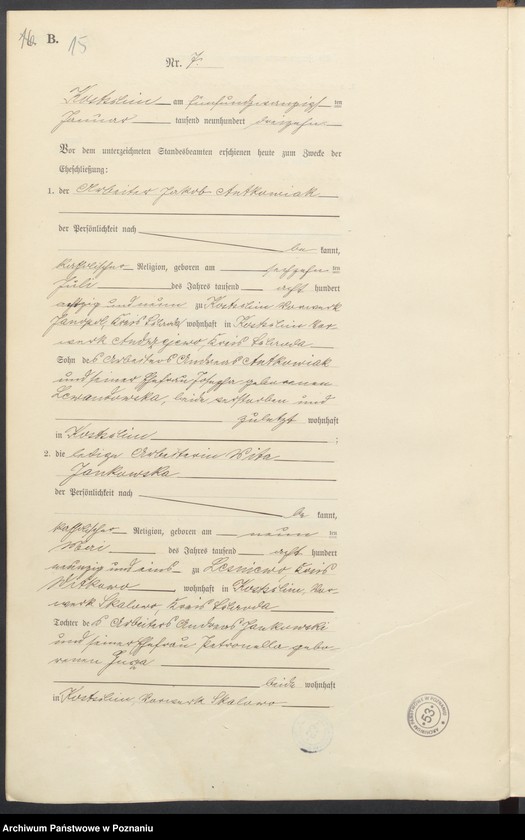 B.
15
Nr. 7.
Kostschin am fünfundzwanzigsten
Januar tausend neunhundert dreizehn
Vor dem unterzeichneten Standesbeamten erschienen heute zum Zwecke der
Eheschließung:
1. der Arbeiter Jakob Antkowiak
der Persönlichkeit nach
be kannt,
katholischer Religion, geboren am sechzehnten
Juli des Jahres tausend acht hundert
achtzig und neun zu Kostschin Vorwerk
Kreis Schroda wohnhaft in Kostschin Vor-
werk Andrzejewo, Kreis Schroda
Sohn des Arbeiters Andreas Antkowiak
und seiner Ehefrau Josepha geborenen
Lewandowska, beide verstorben und
zuletzt wohnhaft
in Kostschin ;
2. die ledige Arbeiterin Wita
Jankowska
der Persönlichkeit nach
be kannt,
katholischer Religion, geboren am neunten
Mai des Jahres tausend acht hundert
neunzig und eins zu Lesniewo Kreis
Witkowo wohnhaft in Kostschin, Vor-
werk Skalowo, Kreis Schroda
Tochter des Arbeiters Andreas Jankowski
und seiner Ehefrau Petronella gebo-
renen
beide wohnhaft
in Kostschin, Vorwerk Skalowo
ARCHIWUM PAŃSTWOWE W POZNANIU
53
Archiwum Państwowe w Poznaniu